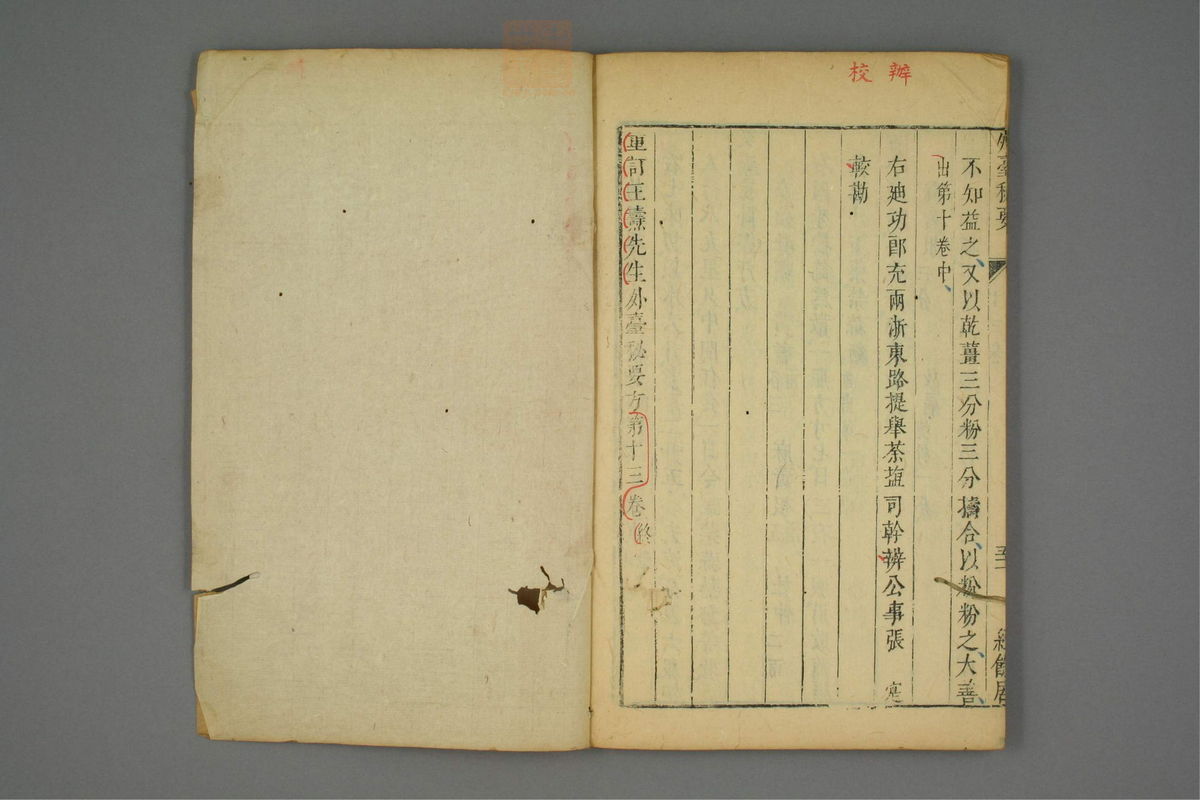 辨
校
外臺秘要
不知益之又以乾薑三分粉三分擣合以粉粉之大善
出第十卷中
右廸功郎充兩浙東路提舉茶塩司幹辨公事張　寔
較勘
重訂王燾先生外臺秘要方第十三卷終